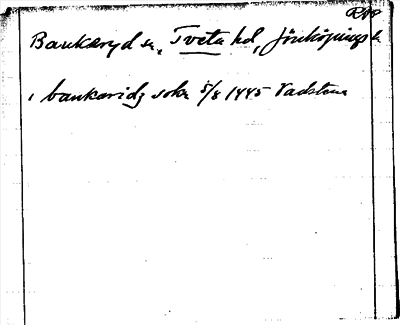 RAP
Bankeryd sn, Tveta hd, Jönköpings l
i bankaridz sokn 5/8 1445 Vadstena